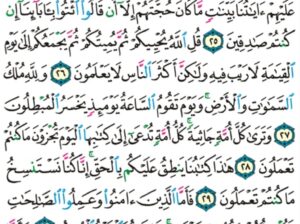 عَلَيْهِمْ ءَايَٰتُنَا بَيِّنَٰتٍ مَّا كَانَ حُجَّتَهُمْ إِلَّآ أَن قَالُوا۟ ٱئْتُوا۟ بِـَٔابَآئِنَآ إِن
كُنتُمْ صَٰدِقِينَ ٢٥ قُلِ ٱللَّهُ يُحْيِيكُمْ ثُمَّ يُمِيتُكُمْ ثُمَّ يَجْمَعُكُمْ إِلَىٰ يَوْمِ
ٱلْقِيَٰمَةِ لَا رَيْبَ فِيهِ وَلَٰكِنَّ أَكْثَرَ ٱلنَّاسِ لَا يَعْلَمُونَ ٢٦ وَلِلَّهِ مُلْكُ
ٱلسَّمَٰوَٰتِ وَٱلْأَرْضِ ۚ وَيَوْمَ تَقُومُ ٱلسَّاعَةُ يَوْمَئِذٍ يَخْسَرُ ٱلْمُبْطِلُونَ
٢٧ وَتَرَىٰ كُلَّ أُمَّةٍ جَاثِيَةً ۚ كُلُّ أُمَّةٍ تُدْعَىٰٓ إِلَىٰ كِتَٰبِهَا ٱلْيَوْمَ تُجْزَوْنَ مَا كُنتُمْ
تَعْمَلُونَ ٢٨ هَٰذَا كِتَٰبُنَا يَنطِقُ عَلَيْكُم بِٱلْحَقِّ ۚ إِنَّا كُنَّا نَسْتَنسِخُ
مَا كُنتُمْ تَعْمَلُونَ ٢٩ فَأَمَّا ٱلَّذِينَ ءَامَنُوا۟ وَعَمِلُوا۟ ٱلصَّٰلِحَٰتِ